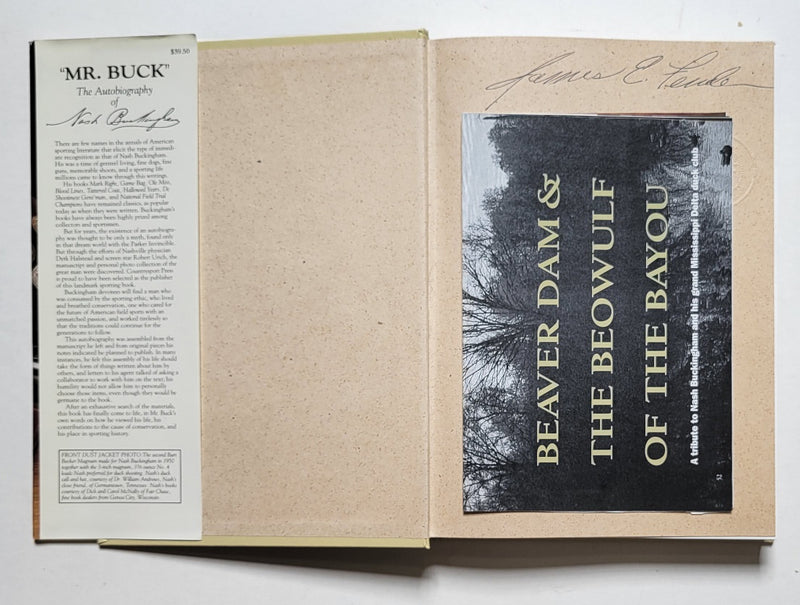 $39.50
"MR. BUCK"
The Autobiography
of
Nash Buckingham
There are few names in the annals of American
sporting literature that elicit the type of immedi-
ate recognition as that of Nash Buckingham.
His was a time of genteel living, fine dogs, fine
guns, memorable shoots, and a sporting life
millions came to know through his writings.
His books Mark Right, Game Bag, Ole Miss,
Blood Lines, Tattered Coat, Hallowed Years, De
Shootinest Gent'man, and National Field Trial
Champions have remained classics, as popular
today as when they were written. Buckingham's
books have always been highly prized among
collectors and sportsmen.
But for years, the existence of an autobiogra-
phy was thought to be only a myth, found only
in that dream world with the Parker Invincible.
But through the efforts of Nashville physician
Dirk Halstead and screen star Robert Urich, the
manuscript and personal photo collection of the
great man were discovered. Countrysport Press
is proud to have been selected as the publisher
of this landmark sporting book.
Buckingham devotees will find a man who
was consumed by the sporting ethic, who lived
and breathed conservation, one who cared for
the future of American field sports with an
unmatched passion, and worked tirelessly so
that the traditions could continue for the
generations to follow.
This autobiography was assembled from the
manuscript he left and from original pieces his
notes indicated he planned to publish. In many
instances, he felt this assembly of his life should
take the form of things written about him by
others, and letters to his agent talked of asking a
collaborator to work with him on the text; his
humility would not allow him to personally
choose those items, even though they would be
germane to the book.
After an exhaustive search of the materials,
this book has finally come to life, in Mr. Buck's
own words on how he viewed his life, his
contributions to the cause of conservation, and
his place in sporting history.
FRONT DUST JACKET PHOTO: The second Burt
Becker Magnum made for Nash Buckingham in 1950
together with the 3-inch magnum, 1⅜ ounce No. 4
loads Nash preferred for duck shooting. Nash's duck
call and hat, courtesy of Dr. William Andrews, Nash's
close friend, of Germantown, Tennessee. Nash's books
courtesy of Dick and Carol McNally of Fair Chase,
fine book dealers from Genoa City, Wisconsin.
James E.
BEAVER DAM &
THE BEOWULF
OF THE BAYOU
A tribute to Nash Buckingham and his grand Mississippi Delta duck club
52